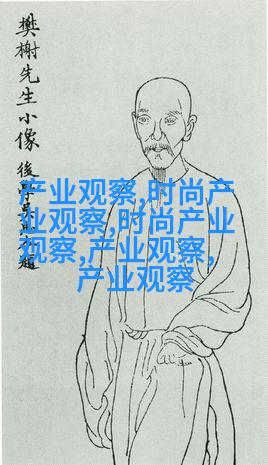 樊榭先生小像
後 題
产业观察,时尚产
业观察,时尚产业
观察,产业观察,
产业观察